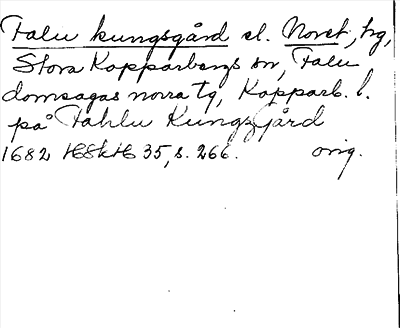 Falu kungsgård el. Noret, hg,
Stora Kopparbergs sn, Falu
domsagas norra tg, Kopparb. l.
på Fahlu Kungzgård
1682 HSkH 35, s. 266. orig.